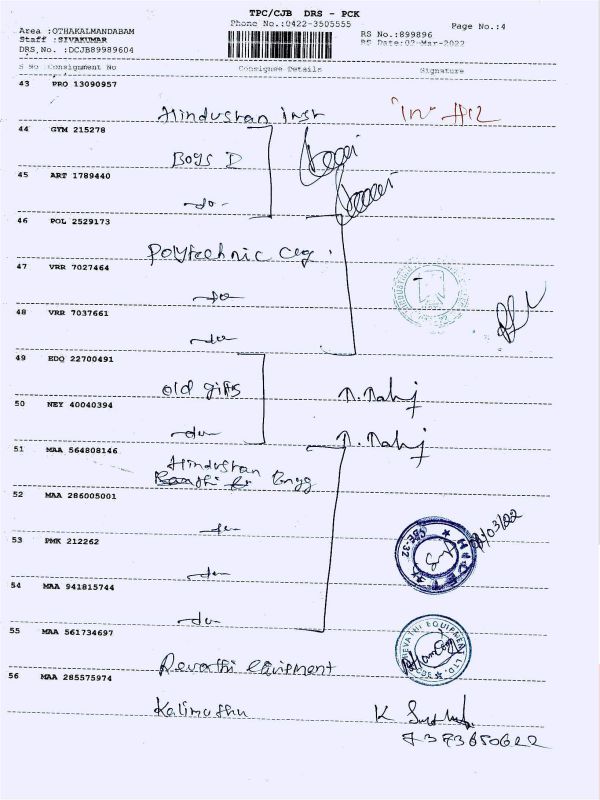 TPC/CJB DRS - PCK
Phone No.:0422-3505555
Page No.:4
Area :OTHAKALMANDABAM
Staff :SIVAKUMAR
DRS.No. :DCJB89989604
RS No.:899896
RS Date:02-Mar-2022
S No Consignment No Consignee Details Signature
43 PRO 13090957
Hindustan Inst
44 GYM 215278
Boys D
45 ART 1789440
-do-
46 POL 2529173
Polytechnic Clg.
47 VRR 7027464
-do-
48 VRR 7037661
-do-
49 EDQ 22700491
old gifts
50 NEY 40040394
-do-
51 MAA 564808146
Hindustan
Engg
52 MAA 286005001
-do-
53 PMK 212262
-do-
54 MAA 941815744
-do-
55 MAA 561734697
Revathi equipment
56 MAA 285575974
Kalimuthu
K
7373650622